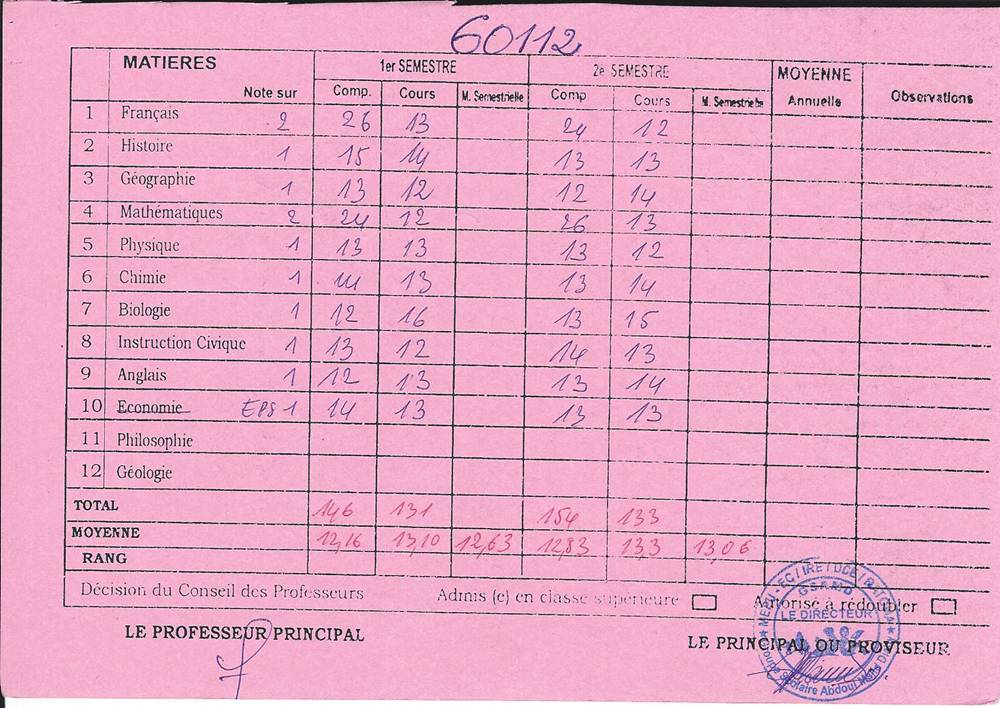 60112
MATIERES 1er SEMESTRE 2e SEMESTRE MOYENNE
Note sur Comp. Cours M. Semestrielle Comp Cours M. Semestrielle Annuelle Observations
1 Français 2 26 13 24 12
2 Histoire 1 15 14 13 13
3 Géographie 1 13 12 12 14
4 Mathématiques 2 24 12 26 13
5 Physique 1 13 13 13 12
6 Chimie 1 13 13 14
7 Biologie 1 12 16 13 15
8 Instruction Civique 1 13 12 14 13
9 Anglais 1 12 13 13 14
10 Economie EPS 1 14 13 13 13
11 Philosophie
12 Géologie
TOTAL 146 131 154 133
MOYENNE 12,16 13,10 12,63 12,83 13,3 13,06
RANG
Décision du Conseil des Professeurs Admis (e) en classe supérieure Autorisé à redoubler
LE PROFESSEUR PRINCIPAL LE PRINCIPAL OU PROVISEUR
GSAMD
LE DIRECTEUR